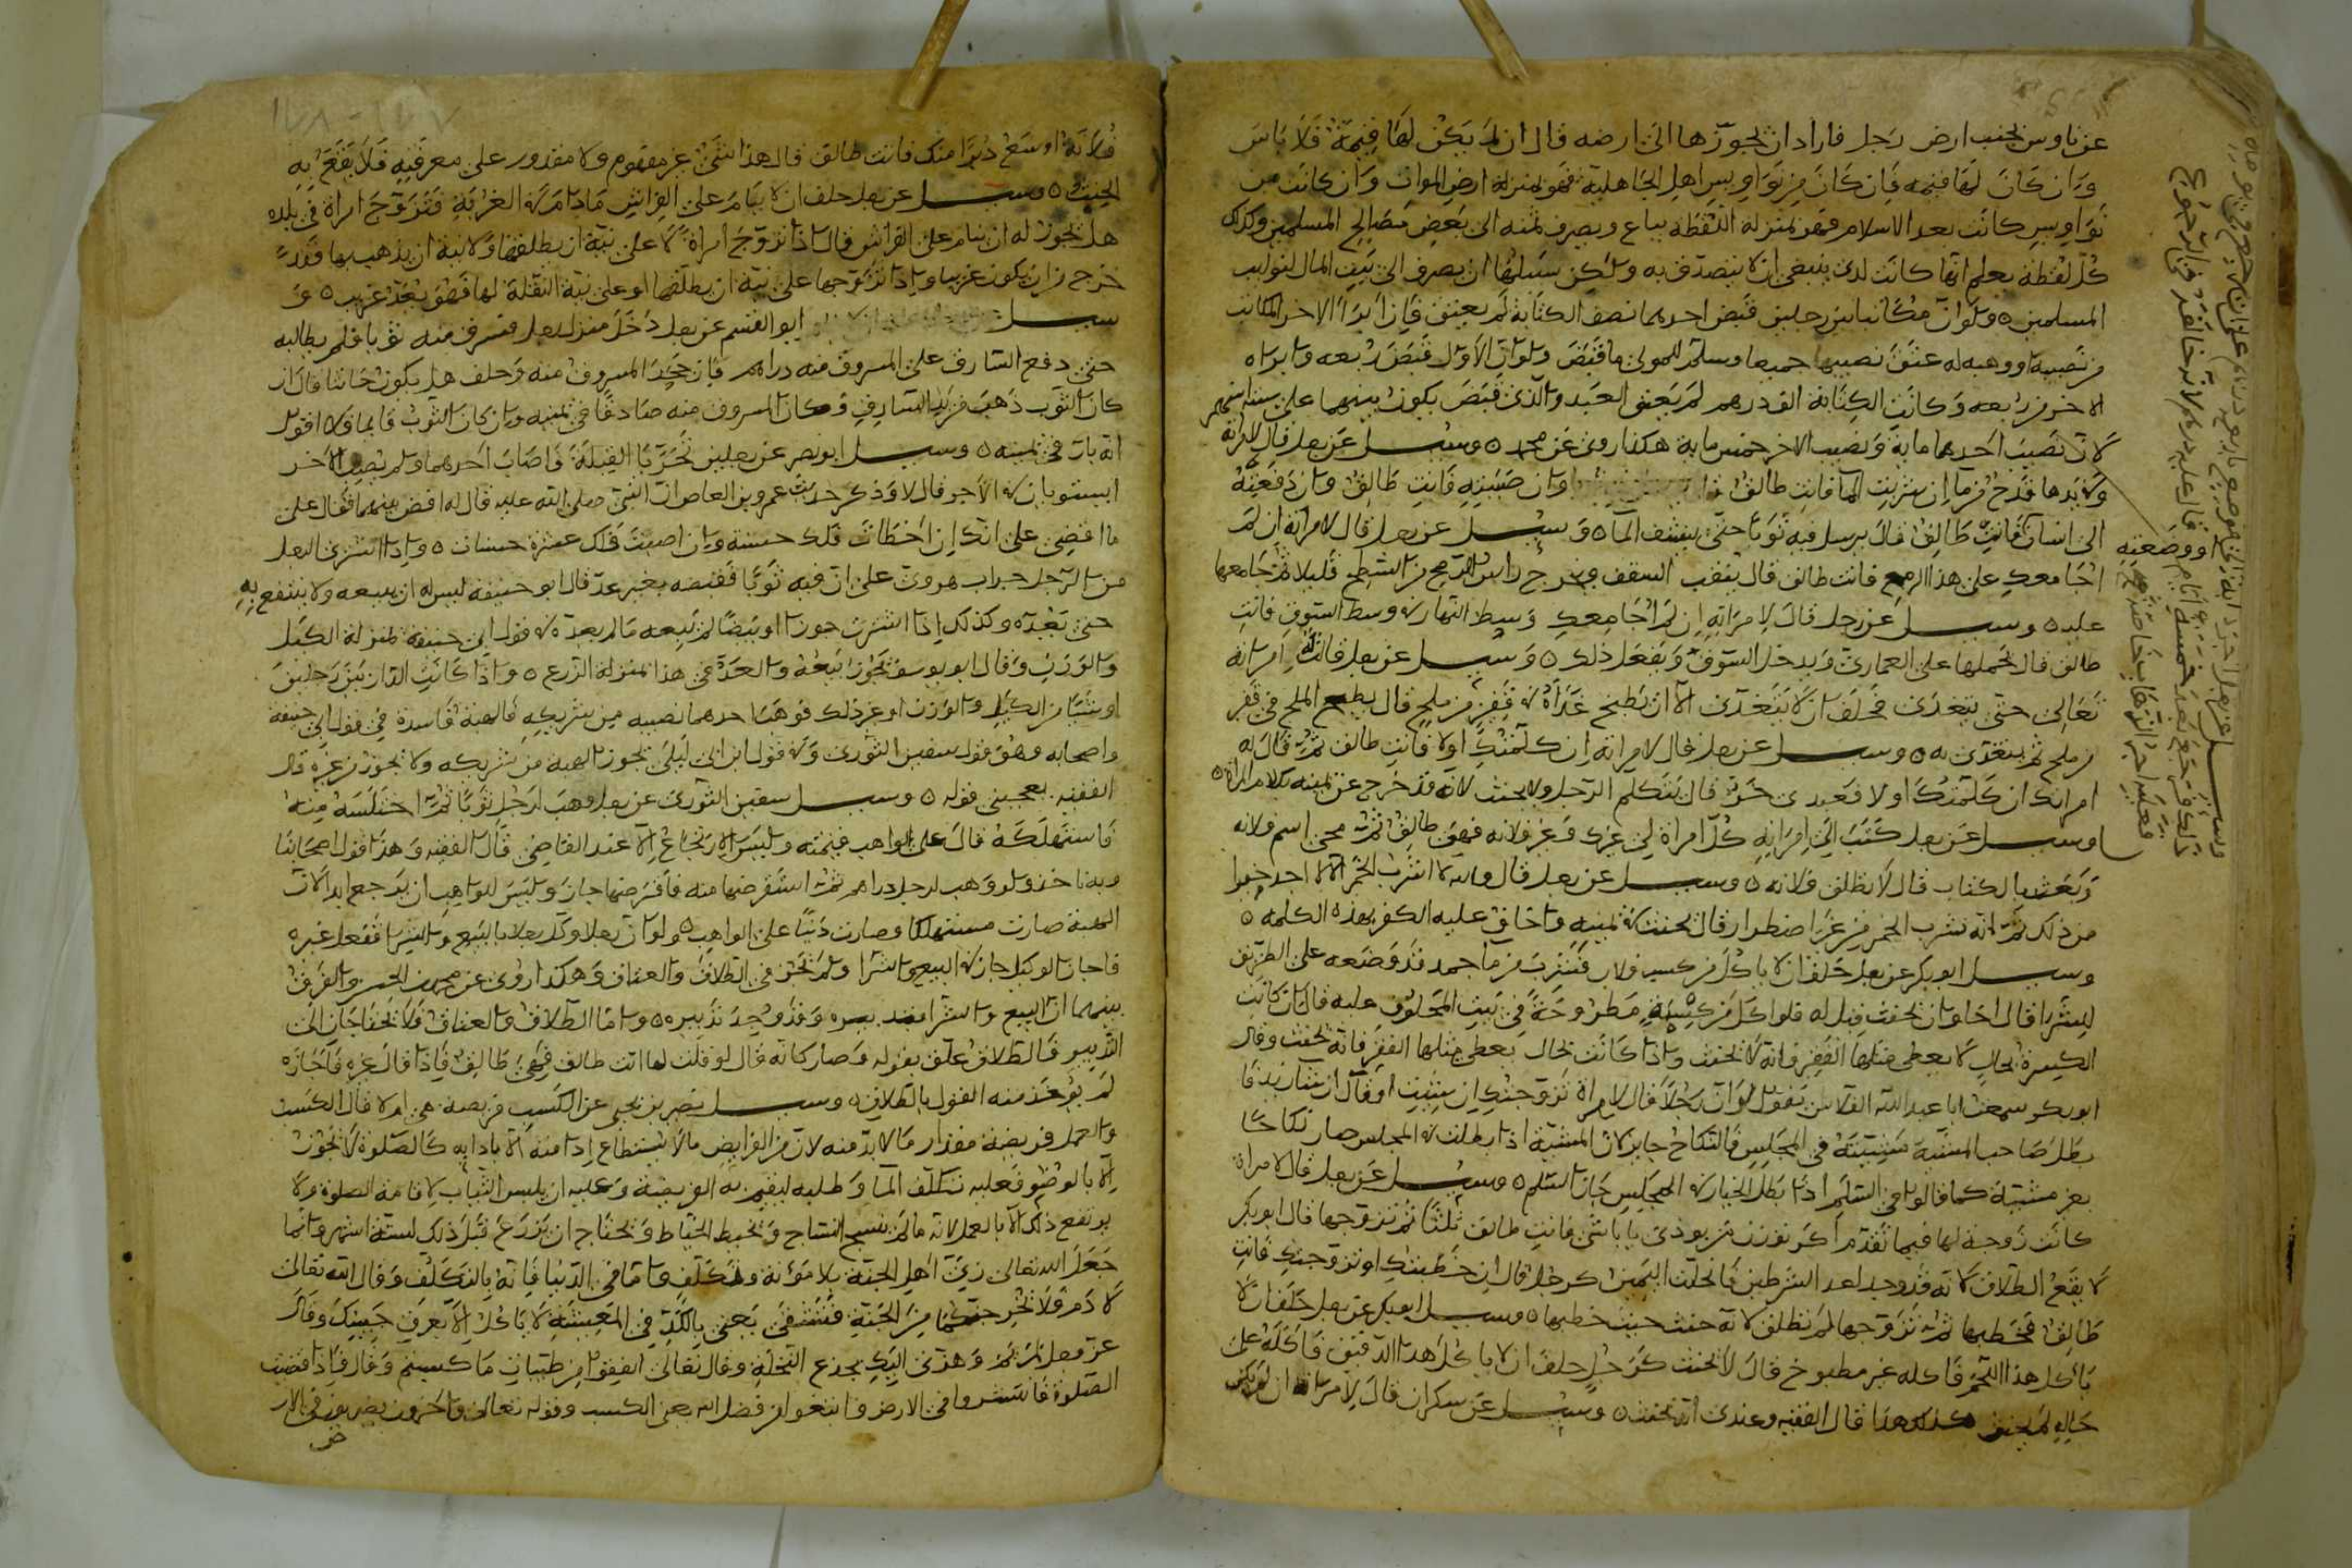 عن ناوس بجنب ارض رجل فاراد ان يحوزها الى ارضه قال ان لم يكن لها قيمة فلا باس
وان كان لها قيمه فان كان من نواويس اهل الجاهلية فهو بمنزلة ارض الموات وان كانت من
نواويس كانت بعد الاسلام فهو بمنزلة اللقطه يباع ويصرف ثمنه الى بعض مصالح المسلمين وكذلك
كل لقطة يعلم انها كانت لذمي ينبغي ان لا يتصدق به ولكن سبيلها ان يصرف الى بيت المال لنوايب
المسلمين ٥ ولو ان مكاتبا بين رجلين قبض احدهما نصف الكتابة لم يعتق فان ابرا الاخر المكاتب
من نصيبه او وهبه له عتق نصيبها جميعا وسلم للمولى ما قبض ولو ان الاول قبض ربعه وابراه
الاخر من ربعه وكانت الكتابة الف درهم لم يعتق العبد والذي قبض يكون بينهما على ستة اسهم
لان نصيب احدهما مايه ونصيب الاخر خمس مايه هكذا روي عن محمد ٥ وسئل عن رجل قال لامراته
وبيدها قدح من ما ان شربت الما فانت طالق وان صببته فانت طالق وان دفعته
الى انسان فانت طالق قال يرسل فيه ثوبا حتى ينشف الما ٥ وسئل عن رجل قال لامراته ان لم
اجامعك على هذا الرمح فانت طالق قال ينقب السقف ويخرج راس الرمح من السطح قليلا ثم جامعها
عليه ٥ وسئل عن رجل قال لامراته ان لم اجامعك وسط النهار في وسط السوق فانت
طالق قال يحملها على العمارى ويدخل السوق ويفعل ذلك ٥ وسئل عن رجل قالت له امراته
تعالى حتى تتغدى فحلف ان لا يتغدى الا ان يطبخ غداه في قفيز من ملح قال يطبخ الملح في قفيز
من ملح ثم يتغدى به ٥ وسئل عن رجل قال لامراته ان كلمتك اولا فانت طالق ثم قال له
امراته ان كلمتك اولا فعبدى حر قال يتكلم الرجل ولا يحنث لانه قد خرج عن يمينه بكلام المراة ٥
وسئل عن رجل كتب الى امراته كل امراة لي غيرك وغير فلانه فهي طالق ثم محى اسم فلانه
وبعث بالكتاب قال لا تطلق فلانه ٥ وسئل عن رجل قال والله لا اشرب الخمر الا لا اجد خيرا
من ذلك ثم انه شرب الخمر من غير اضطرار قال يحنث في يمينه واخاف عليه الكفر بهذه الكلمه ٥
وسئل ابو بكر عن رجل حلف ان لا ياكل من كسب فلان فشرب من ما جمد قد وضعه على الطريق
للشرا قال اخاف ان يحنث قيل له فلو اكل من كسيرة مطروحة في بيت المحلوف عليه قال ان كانت
الكسيرة بحال لا يعطى مثلها الفقير فانه لا يحنث واذا كانت بحال يعطى مثلها الفقير فانه يحنث وقال
ابو بكر سمعت ابا عبد الله القلاس يقول لو ان رجلا قال لامراة تزوجتك ان شئت او قال ان شا زيد فا
بطل صاحب المشية مشيئته في المجلس فالنكاح جايز لان المشيئة اذا بطلت في المجلس صار نكاحا
بغير مشيئة كما قالوا في السلم اذا بطل الخيار في المجلس جاز السلم ٥ وسئل عن رجل قال لامراة
كانت زوجة لها فيما تقدم اكر تو زن من بودى فانت طالق ثلثا ثم تزوجها قال ابو بكر
لا يقع الطلاق لانه قد وجد احد الشرطين فانحلت اليمين كرجل قال ان خطبتك او تزوجتك فانت
طالق فخطبها ثم تزوجها لم تطلق لانه حنث حيث خطبها ٥ وسئل ابو بكر عن رجل حلف ان لا
ياكل هذا اللحم فاكله غير مطبوخ قال لا يحنث كرجل حلف ان لا ياكل هذا الدقيق فاكله على
حاله لم يحنث كذلك هذا قال الفقيه وعندى انه يحنث ٥ وسئل عن سكران قال لامراته ان لم تكن
او وضعتيه
فلانة اوسع منك فانت طالق قال هذا شئ غير مفهوم ولا مقدور على معرفته فلا يقع به
الحنث ٥ وسئل عن رجل حلف ان لا ينام على الفراش مادام في الغربة فتزوج امراة في بلده
هل يجوز له ان ينام على الفراش قال اذا تزوج امراة لا على نية ان يطلقها ولا نية ان يذهب بها فقد
خرج من ان يكون غريبا واذا تزوجها على نية ان يطلقها او على نية النقلة لها فهو يعد غريب ٥ و
سئل ابو القسم عن رجل دخل منزل رجل فسرق منه ثوبا فلم يطالبه
حتى دفع السارق على المسروق منه دراهم فان جحد المسروق منه وحلف هل يكون حانثا قال ان
كان الثوب ذهب من يد السارق وكان المسروق منه صادقا في يمينه وان كان الثوب قايما فلا اقول
انه بار في يمينه ٥ وسئل ابو نصر عن رجلين تحريا القبلة فاصاب احدهما ولم يصب الاخر
ايستويان في الاجر قال لا وذكر حديث عمرو بن العاص ان النبي صلى الله عليه قال له اقض بينهما فقال على
ما اقضى على انك ان اخطات فلك حسنة وان اصبت فلك عشرة حسنات ٥ واذا اشترى الرجل
من الرجل جراب هروي على ان فيه ثوبا فقبضه بغير عد قال ابو حنيفة ليس له ان يبيعه ولا ينتفع به
حتى يعده وكذلك اذا اشترى جوزا او بيضا لم يبعه مالم يعده في قول ابي حنيفة بمنزلة الكيل
والوزن وقال ابو يوسف يجوز بيعه والعد في هذا بمنزلة الذرع ٥ واذا كانت الدار بين رجلين
او شيئا من الكيل والوزن او غير ذلك فوهب احدهما نصيبه من شريكه فالهبة فاسدة في قول ابي حنيفة
واصحابه وهو قول سفين الثورى وفي قول ابن ابي ليلى تجوز الهبة من شريكه ولا تجوز من غيره قال
الفقيه يعجبني قوله ٥ وسئل سفين الثورى عن رجل وهب لرجل ثوبا ثم اختلسه منه
فاستهلكه قال على الواهب قيمته وليس الارتجاع الا عند القاضي قال الفقيه وهذا قول اصحابنا
وبه ناخذ ولو وهب لرجل دراهم ثم استقرضها منه فاقرضها جاز وليس للواهب ان يرجع ابدا لان
الهبة صارت مستهلكا وصارت دينا على الواهب ٥ ولو ان رجلا وكل رجلا بالبيع والشرا ففعل غيره
فاجاز الوكيل جاز في البيع والشرا ولم يجز في الطلاق والعتاق وهكذا روي عن محمد بن الحسن والفرق
بينهما ان البيع والشرا وقد وجد تدبيره ٥ واما الطلاق والعتاق فلا يحتاجان الى
التدبير فالطلاق علق بقوله وصار كانه قال لو قلت لها انت طالق فهي طالق فاذا قال غيره فاجازه
لم يوجد منه القول بالطلاق ٥ وسئل نصير بن يحيى عن الكسب فريضة هي ام لا قال الكسب
والعمل فريضة مقدار مالابد منه لان من الفرايض مالا يستطاع ادا منه الا بادايه كالصلوة لا تجوز
الا بالوضو فعليه تكلف الما وطلبه ليقيم به الفريضة وعليه ان يلبس الثياب لاقامة الصلوة ولا
يرتفع ذلك الا بالعمل لانه مالم ينسج النساج ويخيط الخياط ويحتاج ان يزرع قبل ذلك لستة اشهر وانما
جعل الله تعالى زي اهل الجنة بلا مؤنة وتكلف واما في الدنيا فانه بالتكلف وقال الله تعالى
لادم فلا يخرجنكما من الجنة فتشقى يعنى بالكد في المعيشة لا ياكل الا بعرق جبينك وقال
عز وجل لمريم وهزى اليك بجذع النخلة وقال تعالى انفقوا من طيبات ما كسبتم وقال فاذا قضيت
الصلوة فانتشروا في الارض وابتغوا من فضل الله يعنى الكسب وقوله تعالى واخرون يضربون في الار
ض